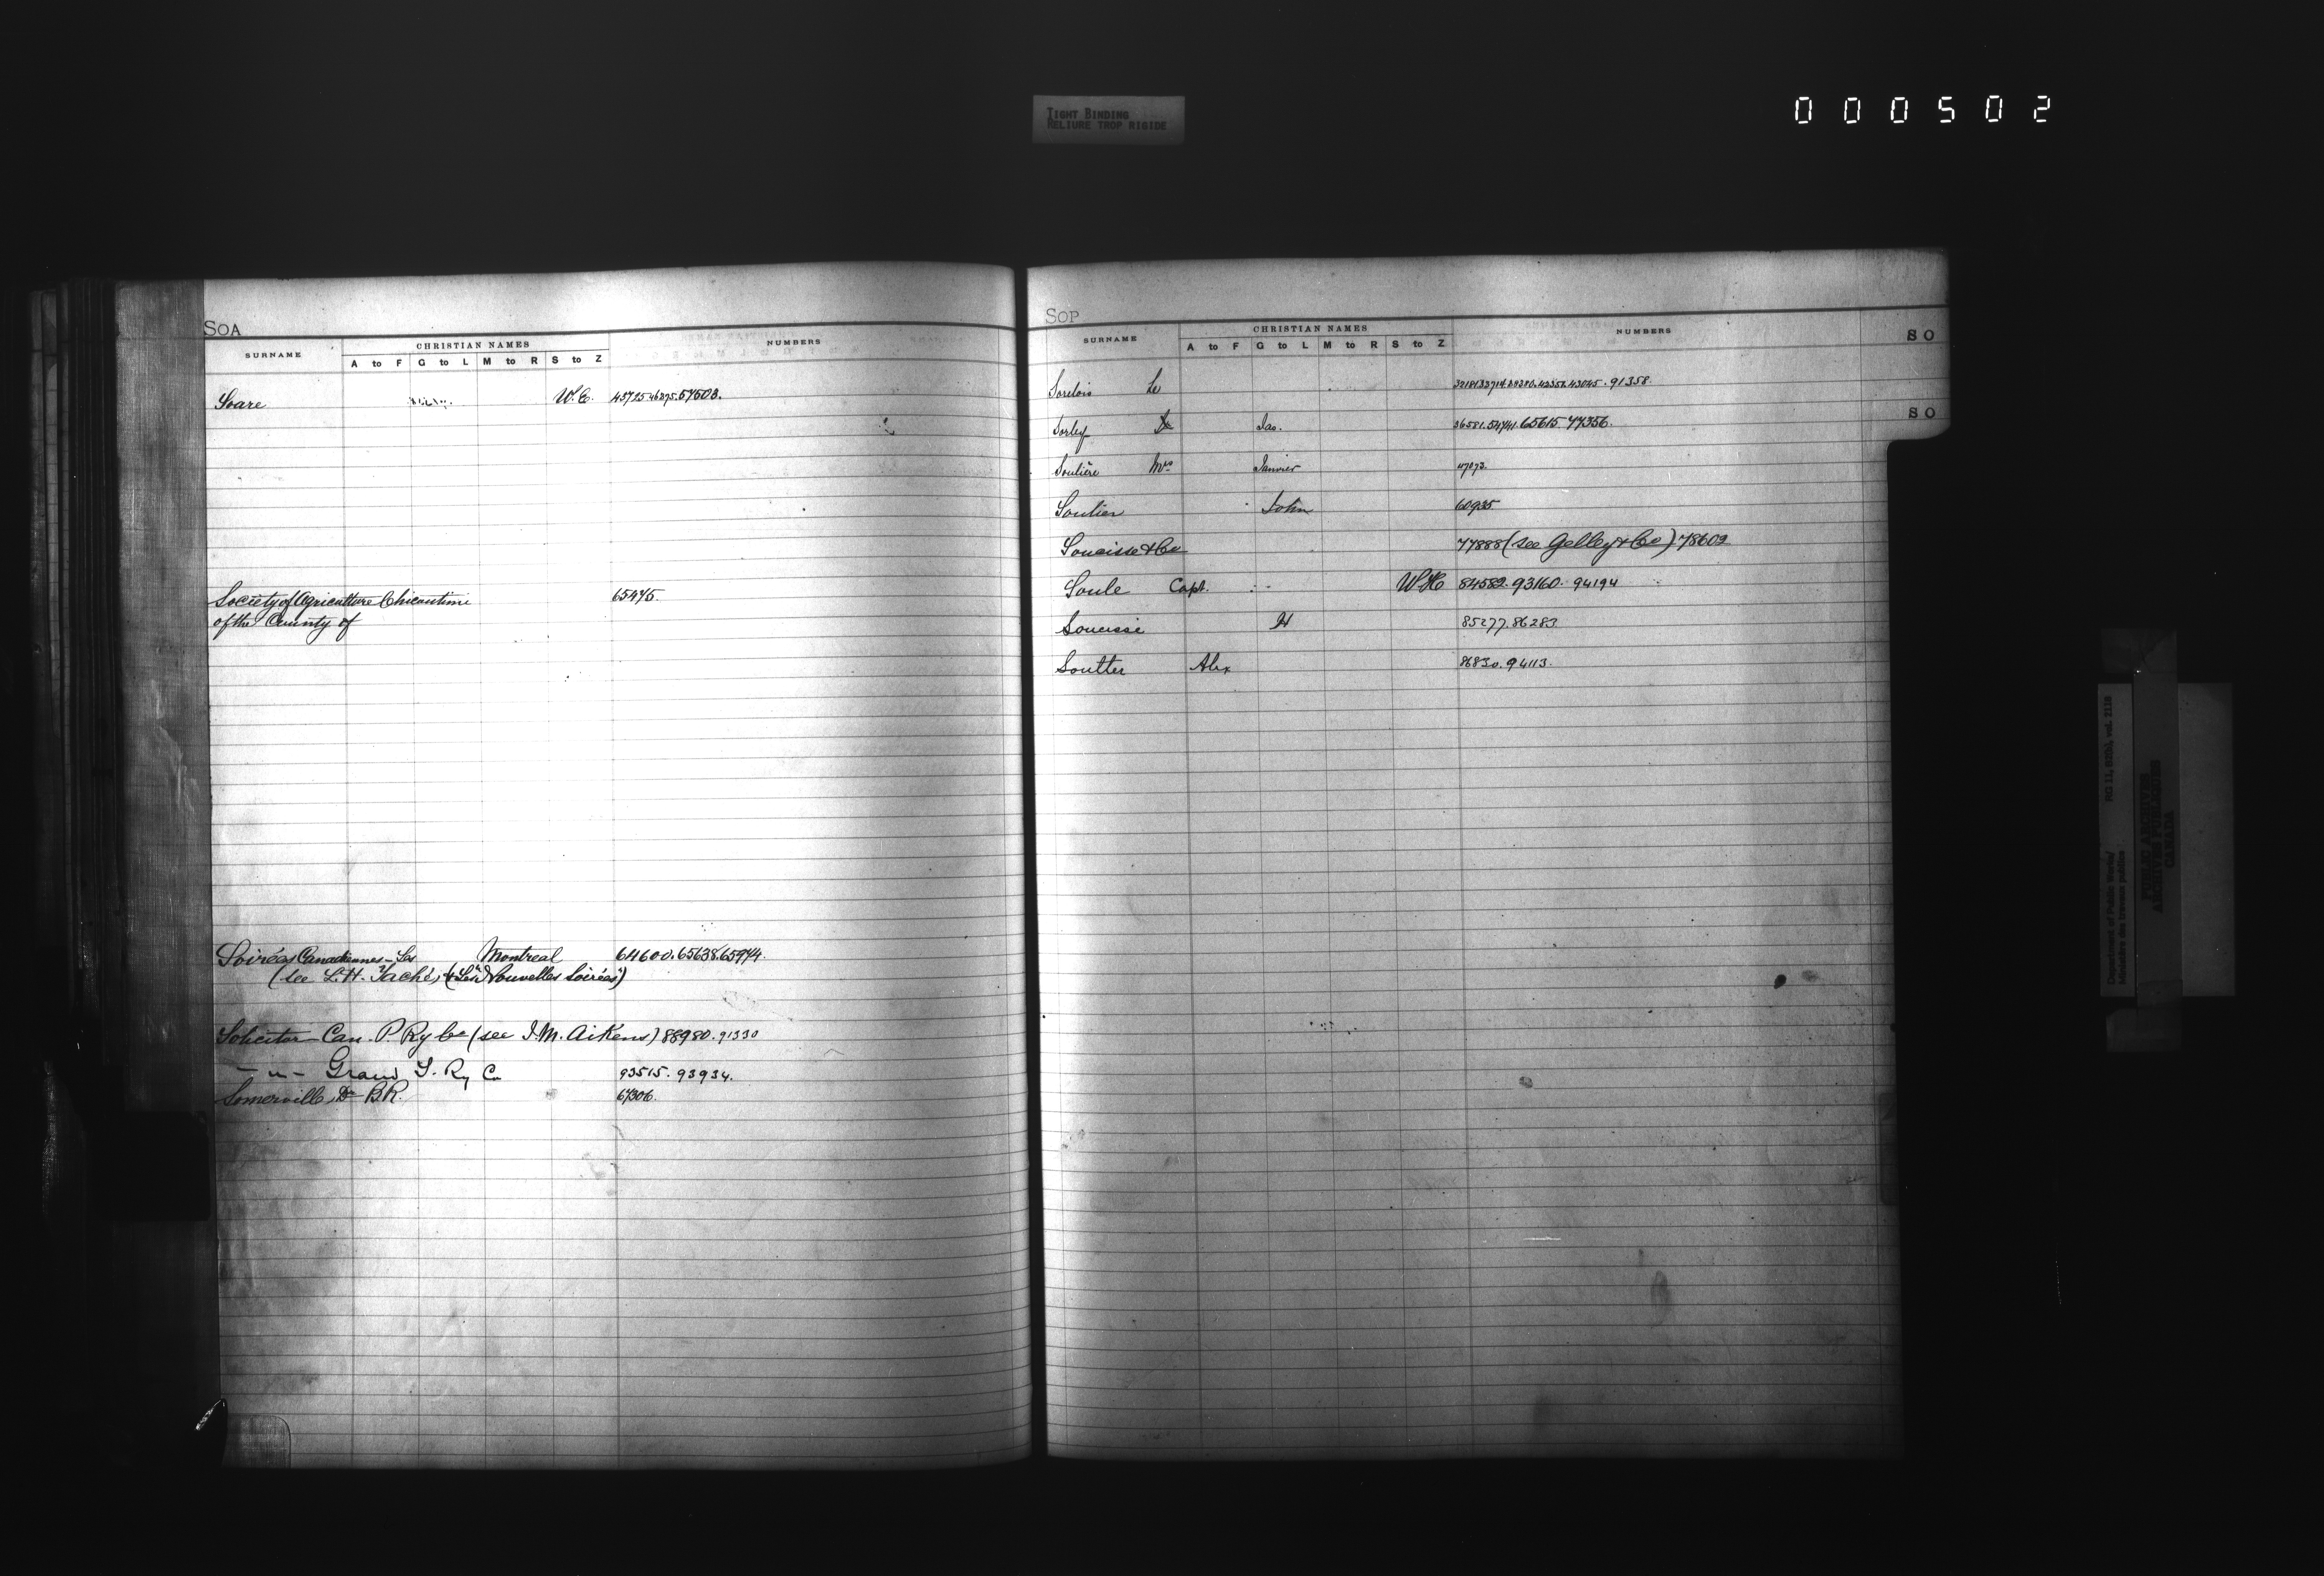 TIGHT BINDING
RELIURE TROP RIGIDE
000502
SOA
SURNAME CHRISTIAN NAMES NUMBERS
A to F G to L M to R S to Z
Soare W. E. 45725.46875.57603.
Society of Agriculture Chicoutimi 65475.
of the County of
Soirées Canadiennes - Les Montreal 64600.65638.65974.
(see L. H. Taché, & "Les Nouvelles Soirées")
Solicitor Can. P. Ry Co (see J. M. Aikens) 88980.91330
- " - Grand T. Ry Co 93515. 93934.
Somerville, Dr B. R. 67306.
SOP
SURNAME CHRISTIAN NAMES NUMBERS
A to F G to L M to R S to Z
SO
Sorelois Le 43045. 91358.
SO
Sorley Jas. 36581.54741.65615.77356.
Soulière Mrs Janvier 47073.
Soulier John 60935
Soucisse & Co 77888 (see Gelley & Co) 78602
Soule Capt. W H 84582. 93160. 94194
Soucisse H 85277. 86283.
Soutter Alex 86830. 94113.
Department of Public Works/ RG 11, B2(b), vol. 2118
Ministère des travaux publics
PUBLIC ARCHIVES
ARCHIVES PUBLIQUES
CANADA